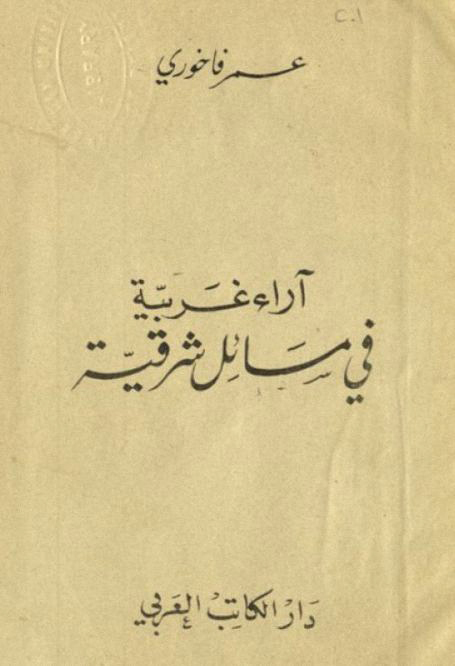 C.1
LIBRARY
عمر فاخوري
آراء غَربيّة
في مسَائل شرقيّة
دَار الكاتِب العَربي